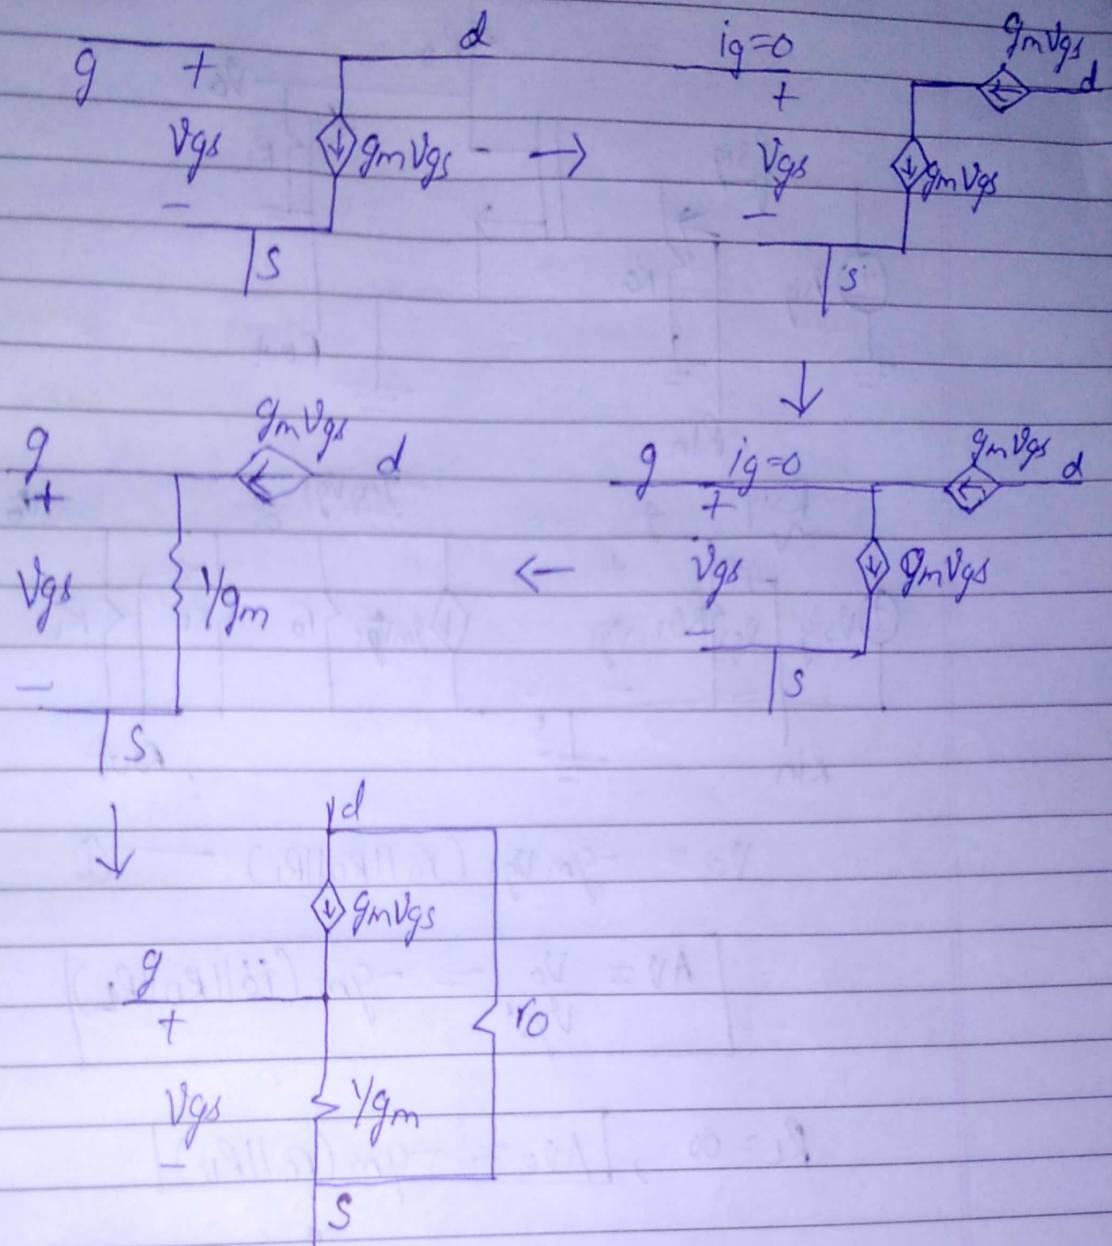 g + d
vgs gmvgs
-
s
→
ig=0 gmvgs
+ d
vgs gmvgs
-
s
↓
g ig=0 gmvgs d
+
vgs gmvgs
-
s
←
g gmvgs d
+
vgs 1/gm
-
s
↓
d
gmvgs
g
+ ro
vgs 1/gm
-
s